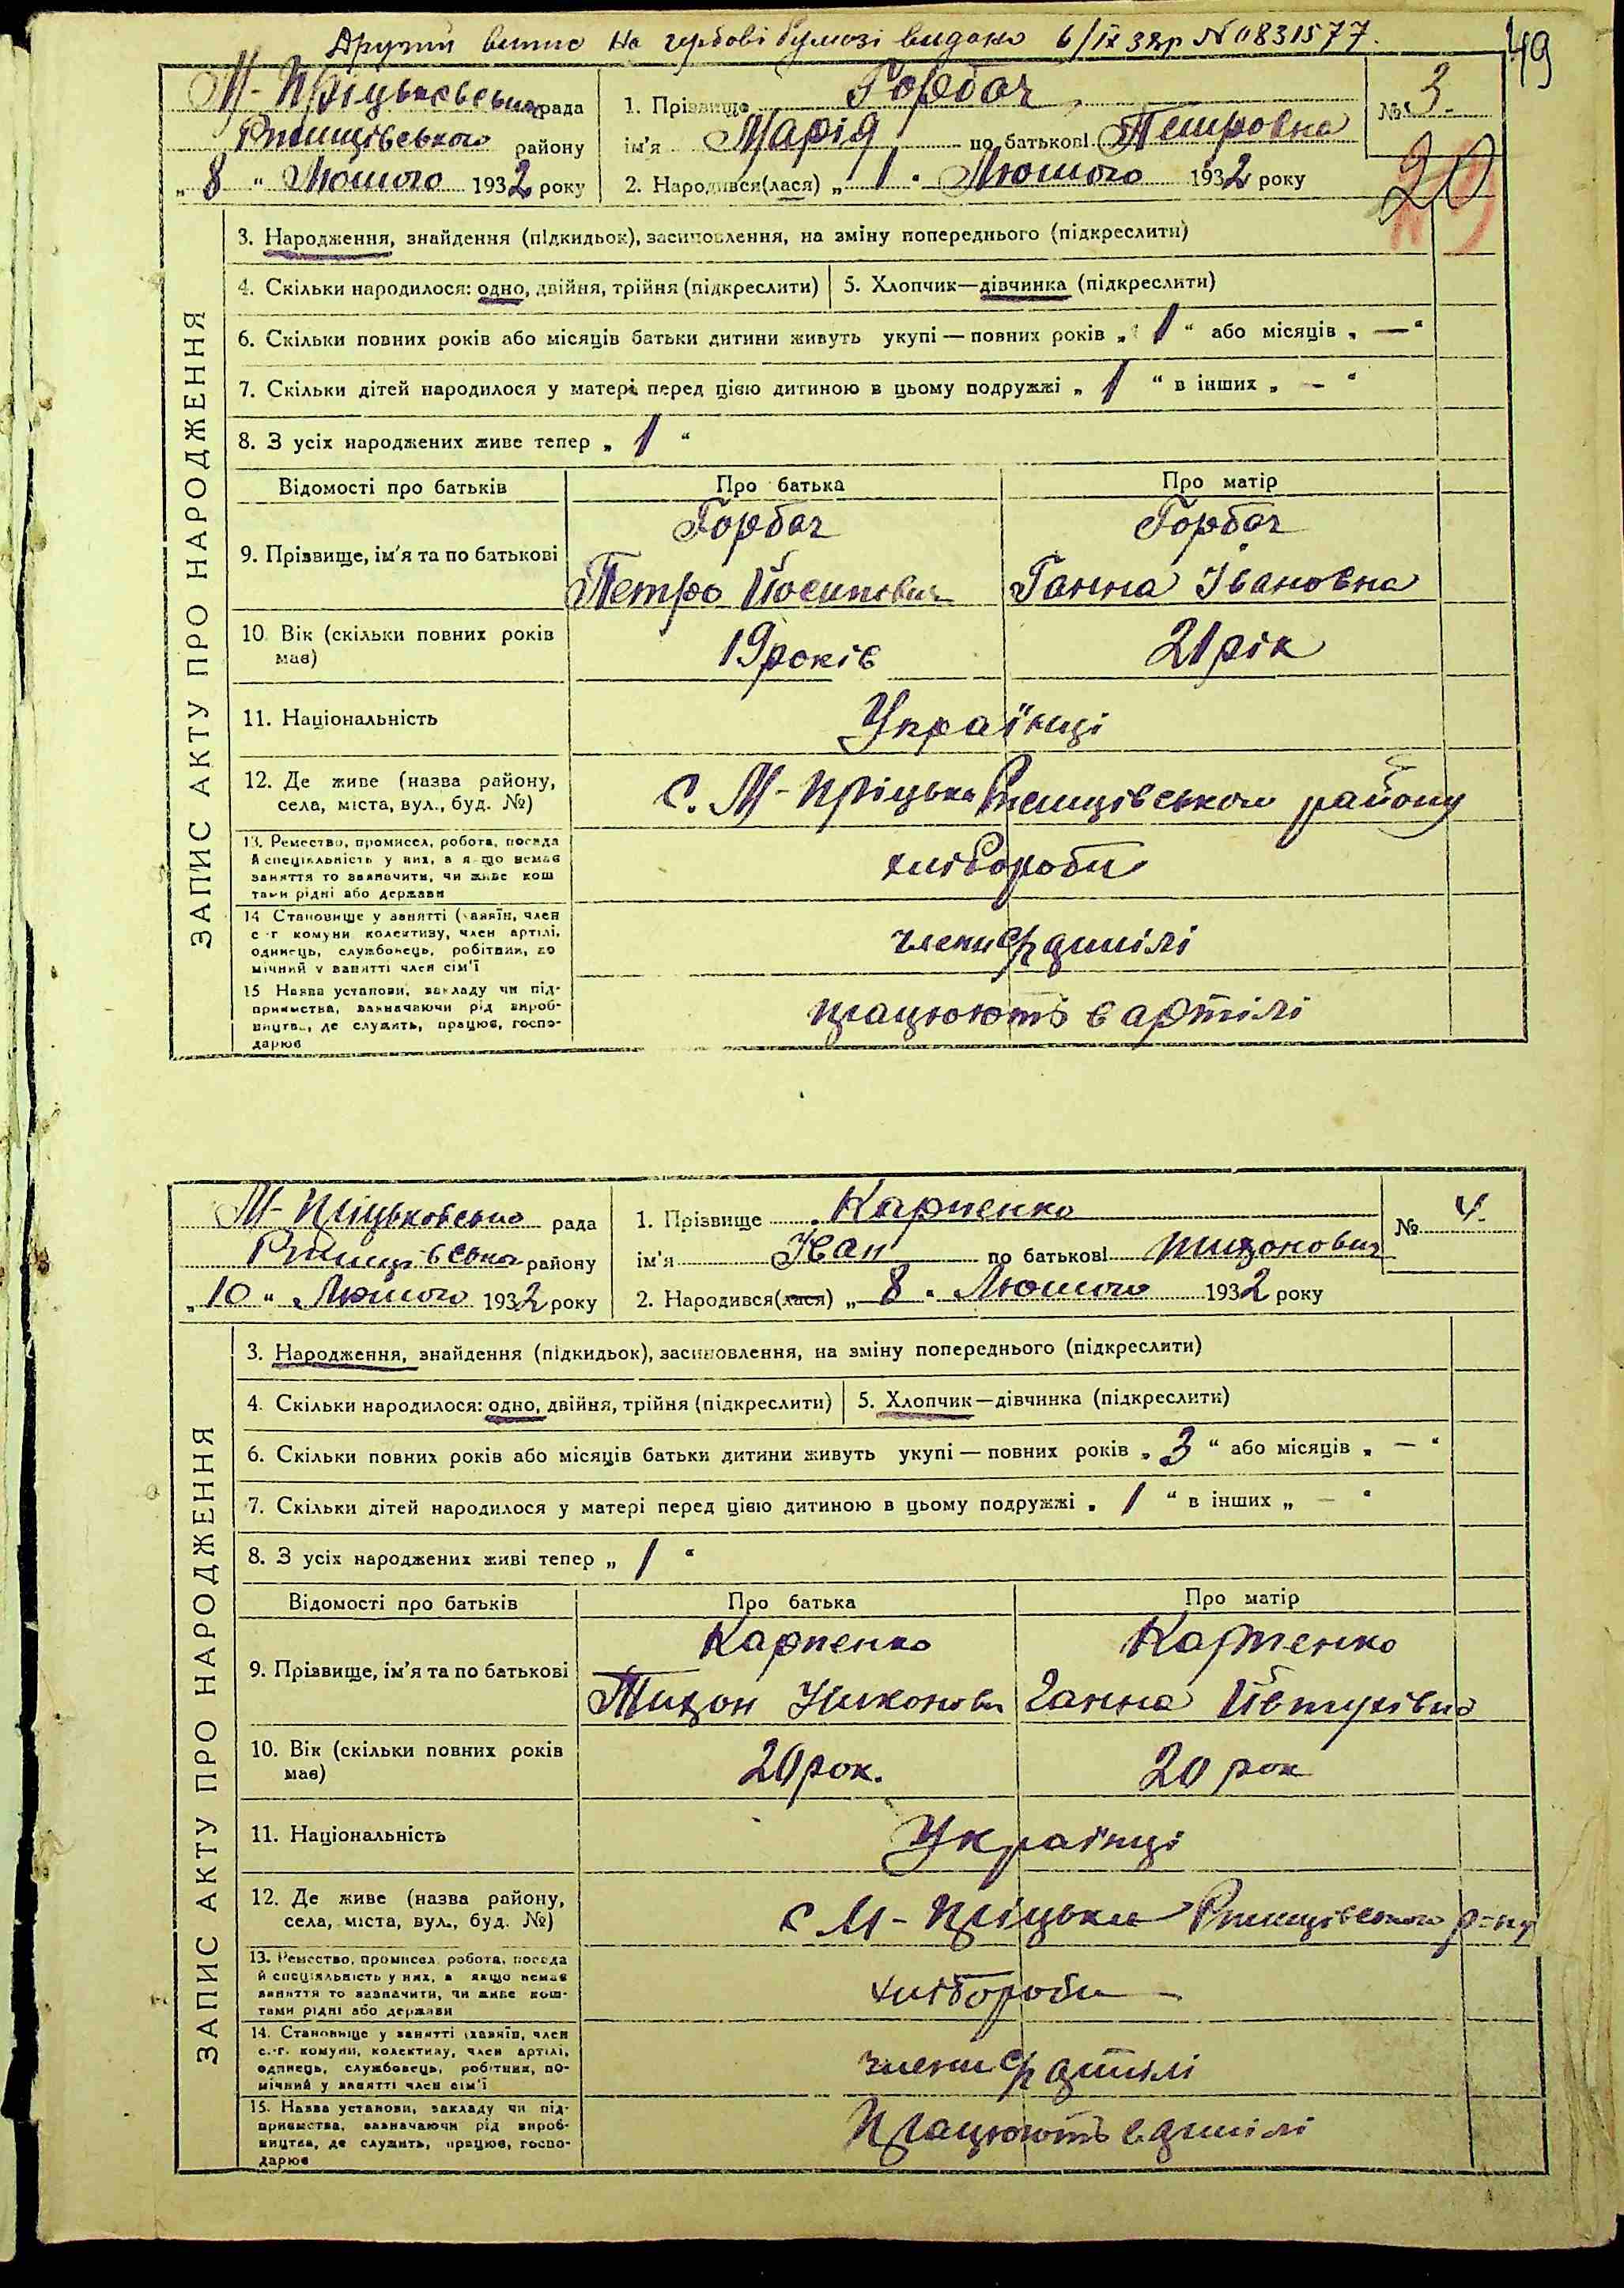 Другий випис на гербові бумазі видано 6/IX 38р № 0831577.
49
М-Пріцьківська рада
Ржищівського району
„8“ Лютого 1932 року
1. Прізвище Горбач
ім'я Марія по батькові Петровна
2. Народився(лася) „1“ Лютого 1932 року
№ 3.
20
ЗАПИС АКТУ ПРО НАРОДЖЕННЯ
3. Народження, знайдення (підкидьок), засиновлення, на зміну попереднього (підкреслити)
4. Скільки народилося: одно, двійня, трійня (підкреслити)
5. Хлопчик—дівчинка (підкреслити)
6. Скільки повних років або місяців батьки дитини живуть укупі — повних років „1“ або місяців „—“
7. Скільки дітей народилося у матері перед цією дитиною в цьому подружжі „1“ в інших „-“
8. З усіх народжених живе тепер „1“
Відомості про батьків Про батька Про матір
9. Прізвище, ім'я та по батькові
Горбач
Петро Йосипович
Горбач
Ганна Івановна
10. Вік (скільки повних років
має)
19 років
21 рік
11. Національність
Українці
12. Де живе (назва району,
села, міста, вул., буд. №)
С. М-Пріцьки Ржищівського району
13. Ремество, промисел, робота, посада
й спеціяльність у них, а якщо немає
заняття то зазначити, чи живе кош
тами рідні або держави
хлібороби
14 Становище у занятті (хазяїн, член
с.-г. комуни колективу, член артілі,
одинець, службовець, робітник, по
мічний у занятті член сім'ї
члени с/г артілі
15 Назва установи, закладу чи під-
приємства, зазначаючи рід вироб-
ництва, де служить, працює, госпо-
дарює
працюють в артілі
М-Пріцьковська рада
Ржищівська району
„10“ Лютого 1932 року
1. Прізвище Карпенко
ім'я Іван по батькові Тихонович
2. Народився(лася) „8“ Лютого 1932 року
№ 4.
ЗАПИС АКТУ ПРО НАРОДЖЕННЯ
3. Народження, знайдення (підкидьок), засиновлення, на зміну попереднього (підкреслити)
4. Скільки народилося: одно, двійня, трійня (підкреслити)
5. Хлопчик—дівчинка (підкреслити)
6. Скільки повних років або місяців батьки дитини живуть укупі — повних років „3“ або місяців „—“
7. Скільки дітей народилося у матері перед цією дитиною в цьому подружжі „1“ в інших „-“
8. З усіх народжених живі тепер „1“
Відомості про батьків Про батька Про матір
9. Прізвище, ім'я та по батькові
Карпенко
Тихон Никонови
Карпенко
Ганна Йовтухівна
10. Вік (скільки повних років
має)
20 рок.
20 рок
11. Національність
Українці
12. Де живе (назва району,
села, міста, вул., буд. №)
с М-Пріцьки Ржищівського р-ну
13. Ремество, промисел робота, посада
й спеціяльність у них, а якщо немає
заняття то зазначити, чи живе кош-
тами рідні або держави
хлібороби —
14. Становище у занятті (хазяїн, член
с.-г. комуни, колективу, член артілі,
одинець, службовець, робітник, по-
мічний у занятті член сім'ї
члени с/г артілі
15. Назва установи, закладу чи під-
приємства, зазначаючи рід вироб-
ництва, де служить, працює, госпо-
дарює
Працюють в артілі